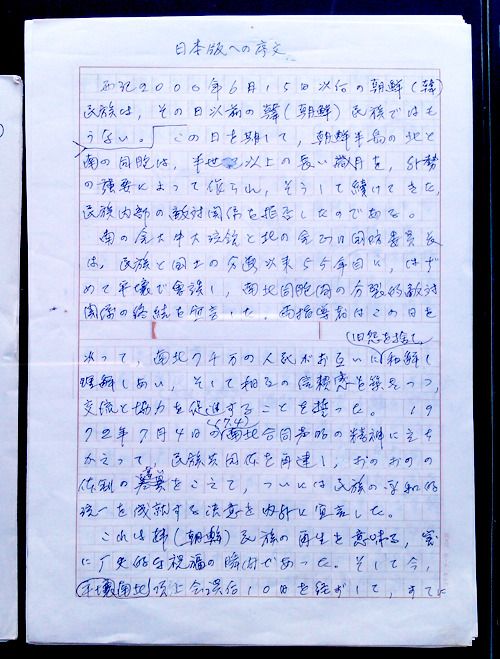 日本版への序文
西紀2000年6月15日以后の朝鮮(韓)
民族は、その日以前の韓(朝鮮)民族ではも
うない。この日を期して、朝鮮半島の北と
南の同胞は、半世 以上の長い歳月を、外勢
の強要によって作られ、そうして続けてきた、
民族内部の敵対関係を拒否したのである。
南の金大中大統領と北の金正日国防委員長
は、民族と国土の分断以来55年目に、はじ
めて平壌で会談し、南北同胞間の分裂的敵対
関係の終結を宣言した。両指導者はこの日を
旧怨を捨て
以って、南北7千万の人民がお互いに和解し
理解しあい、そして相互の信頼感を築きつつ、
交流と協力を促進することを誓った。19
72年7月4日の南北合同声明の精神に立ち
(7.4)
かえって、民族共同体を再建し、おのおのの
体制の 異をこえて、ついには民族の平和的
統一を成就する決意を内外に宣言した。
これは韓(朝鮮)民族の再生を意味する、実
に歴史的な祝福の瞬間であった。そして今、
平壌南北頂上会談后10日を経ずして、すでに